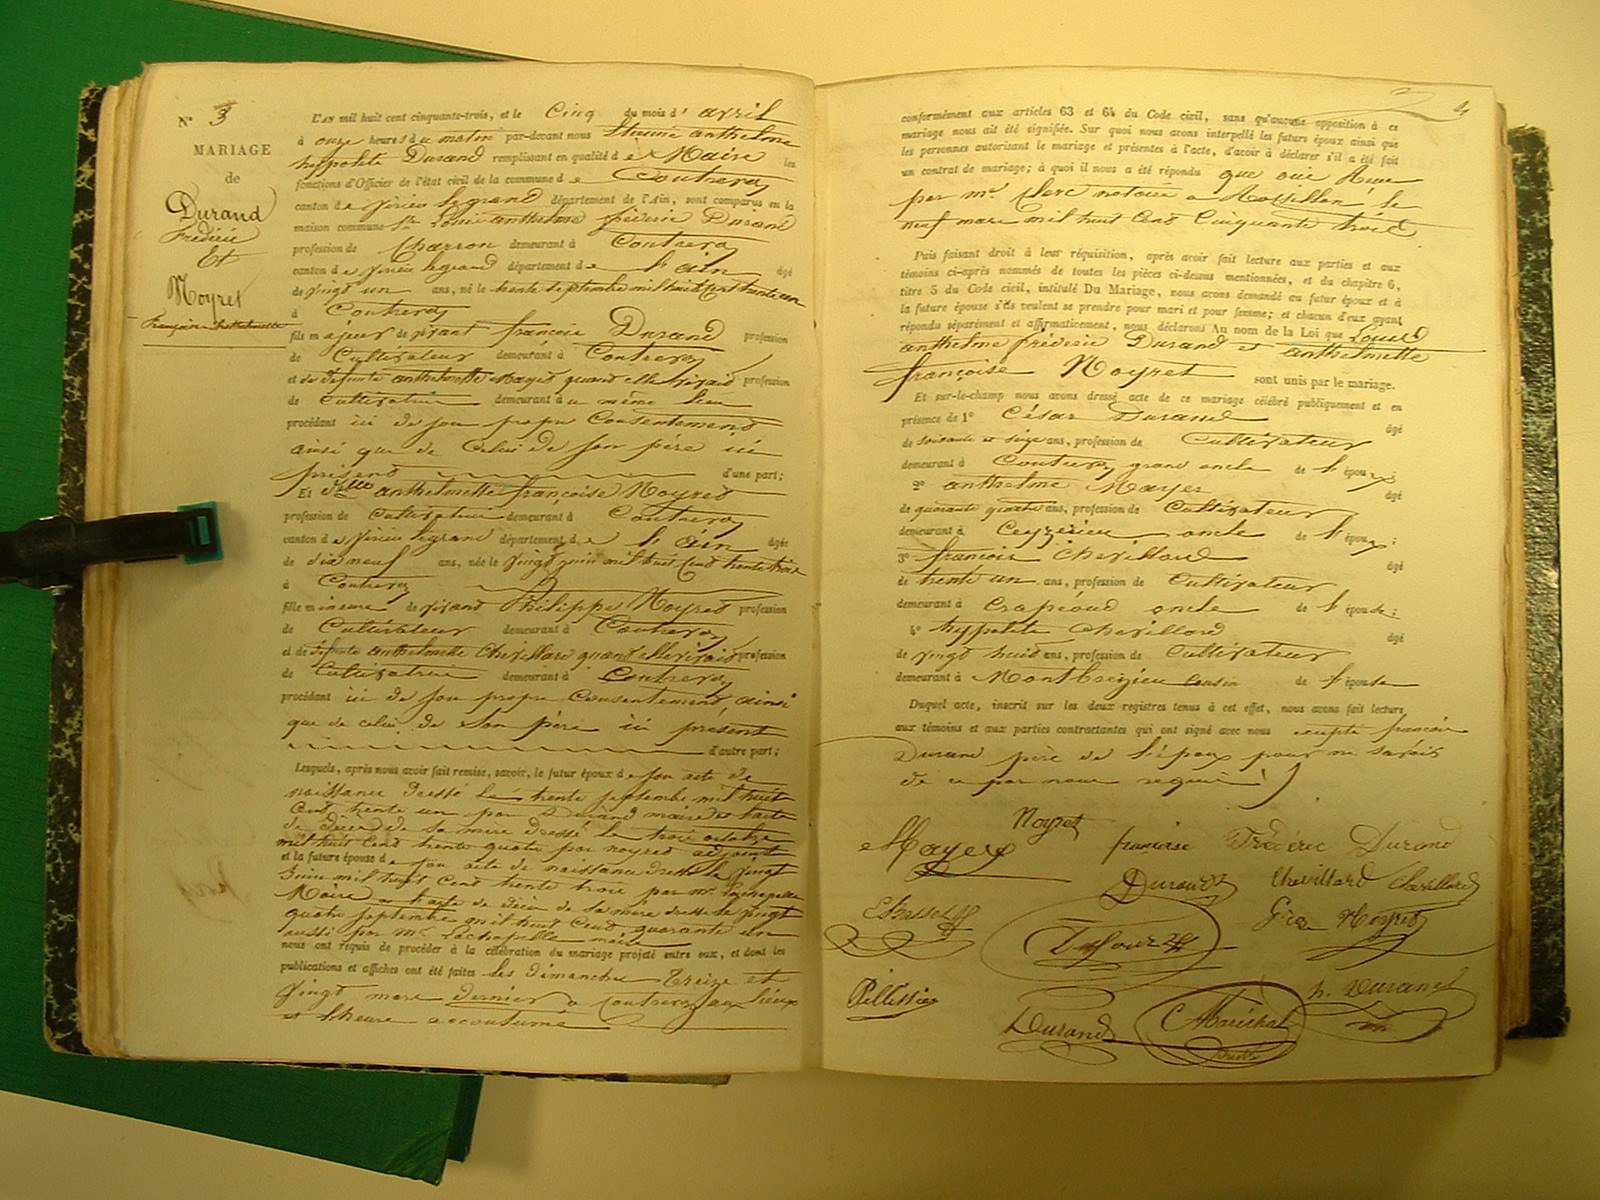 N° 3
MARIAGE
de
Durand
Frédéric
Et
Noyret
Françoise Anthelmette
L'AN mil huit cent cinquante-trois, et le Cinq du mois d'avril
à onze heures du matin par-devant nous Etienne anthelme
hyppolite Durand remplissant en qualité de Maire les
fonctions d'Officier de l'état civil de la commune de Contrevoz
canton de Virieu legrand département de l'Ain, sont comparus en la
maison commune Sr Louis anthelme fréderic Durand
profession de Charron demeurant à Contrevoz
canton de Virieu legrand département de l'ain âgé
de Vingt un ans, né le trente septembre mil huit cent trente un
à Contrevoz
fils majeur de vivant françois Durand profession
de Cultivateur demeurant à Contrevoz
et de défunte anthelmette Mayer quand elle vivait profession
de Cultivatrice demeurant au même lieu
procédant ici de son propre Consentement
ainsi que de Celui de son père ici
présent d'une part;
Et Dlle anthelmette françoise Noyret
profession de Cultivatrice demeurant à Contrevoz
canton de Virieu legrand département de l'ain âgée
de dix neuf ans, née le Vingt juin mil huit Cent trente trois
à Contrevoz
fille mineure de vivant Philippe Noyret profession
de Cultivateur demeurant à Contrevoz
et de défunte anthelmette Chevillard quand elle vivait profession
de Cultivatrice demeurant à Contrevoz
procédant ici de son propre Consentement, ainsi
que de celui de son père ici présent
d'autre part;
Lesquels, après nous avoir fait remise, savoir, le futur époux de son acte de
naissance dressé le trente septembre mil huit
Cent trente un par Durand maire et l'acte
de décès de sa mère dressé le trois octobre
mil huit Cent trente quatre par noyret adjoint
et la future épouse de son acte de naissance dressé le vingt
juin mil huit Cent trente trois par Mr
Maire et l'acte de décès de sa mère dressé le vingt
quatre septembre mil huit Cent quarante un
aussi par Mr Lachapelle maire
nous ont requis de procéder à la célébration du mariage projeté entre eux, et dont les
publications et affiches ont été faites les dimanches treize et
Vingt mars dernier à Contrevoz aux lieux
et l'heure accoutumé
conformément aux articles 63 et 64 du Code civil, sans qu'aucune opposition à ce
mariage nous ait été signifiée. Sur quoi nous avons interpellé les futurs époux ainsi que
les personnes autorisant le mariage et présentes à l'acte, d'avoir à déclarer s'il a été fait
un contrat de mariage; à quoi il nous a été répondu que oui Reçu
par mr Clerc notaire à Rossillon le
neuf mars mil huit Cent Cinquante trois
Puis faisant droit à leur réquisition, après avoir fait lecture aux parties et aux
témoins ci-après nommés de toutes les pièces ci-dessus mentionnées, et du chapitre 6,
titre 5 du Code civil, intitulé Du Mariage, nous avons demandé au futur époux et à
la future épouse s'ils veulent se prendre pour mari et pour femme; et chacun d'eux ayant
répondu séparément et affirmativement, nous déclarons Au nom de la Loi que Louis
anthelme fréderic Durand et anthelmette
françoise Noyret sont unis par le mariage.
Et sur-le-champ nous avons dressé acte de ce mariage célébré publiquement et en
présence de 1° César Durand âgé
de soixante et seize ans, profession de Cultivateur
demeurant à Contrevoz grand oncle de l'époux;
2° anthelme Mayer âgé
de quarante quatre ans, profession de Cultivateur
demeurant à Ceyzérieu oncle de l'époux;
3° françois Chevillard âgé
de trente un ans, profession de Cultivateur
demeurant à Crapéoud oncle de l'épouse;
4° hyppolite Chevillard âgé
de vingt huit ans, profession de Cultivateur
demeurant à Montbrezieu Cousin de l'épouse
Duquel acte, inscrit sur les deux registres tenus à cet effet, nous avons fait lecture
aux témoins et aux parties contractantes qui ont signé avec nous excepté françois
Durand père de l'époux pour ne savoir
de ce par nous requis
Noyret
Mayer
françoise Frédéric Durand
Durand
Chevillard Chevillard
Noyret
Dufour
Pellissier
h. Durand
Durand
C Maréchal